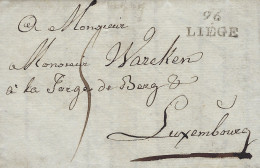 A Monsieur
96
LIÉGE
a Monsieur Warcken
à la Forge de Berg &
5
Luxembourg